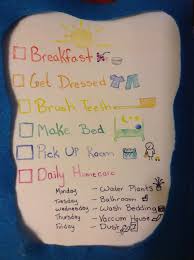 Breakfast
Get Dressed
Brush Teeth
Make Bed
Pick Up Room
Daily Homecare
Monday - Water Plants
Tuesday - Bathroom
Wednesday - Wash Bedding
Thursday - Vaccum House
Friday - Dust